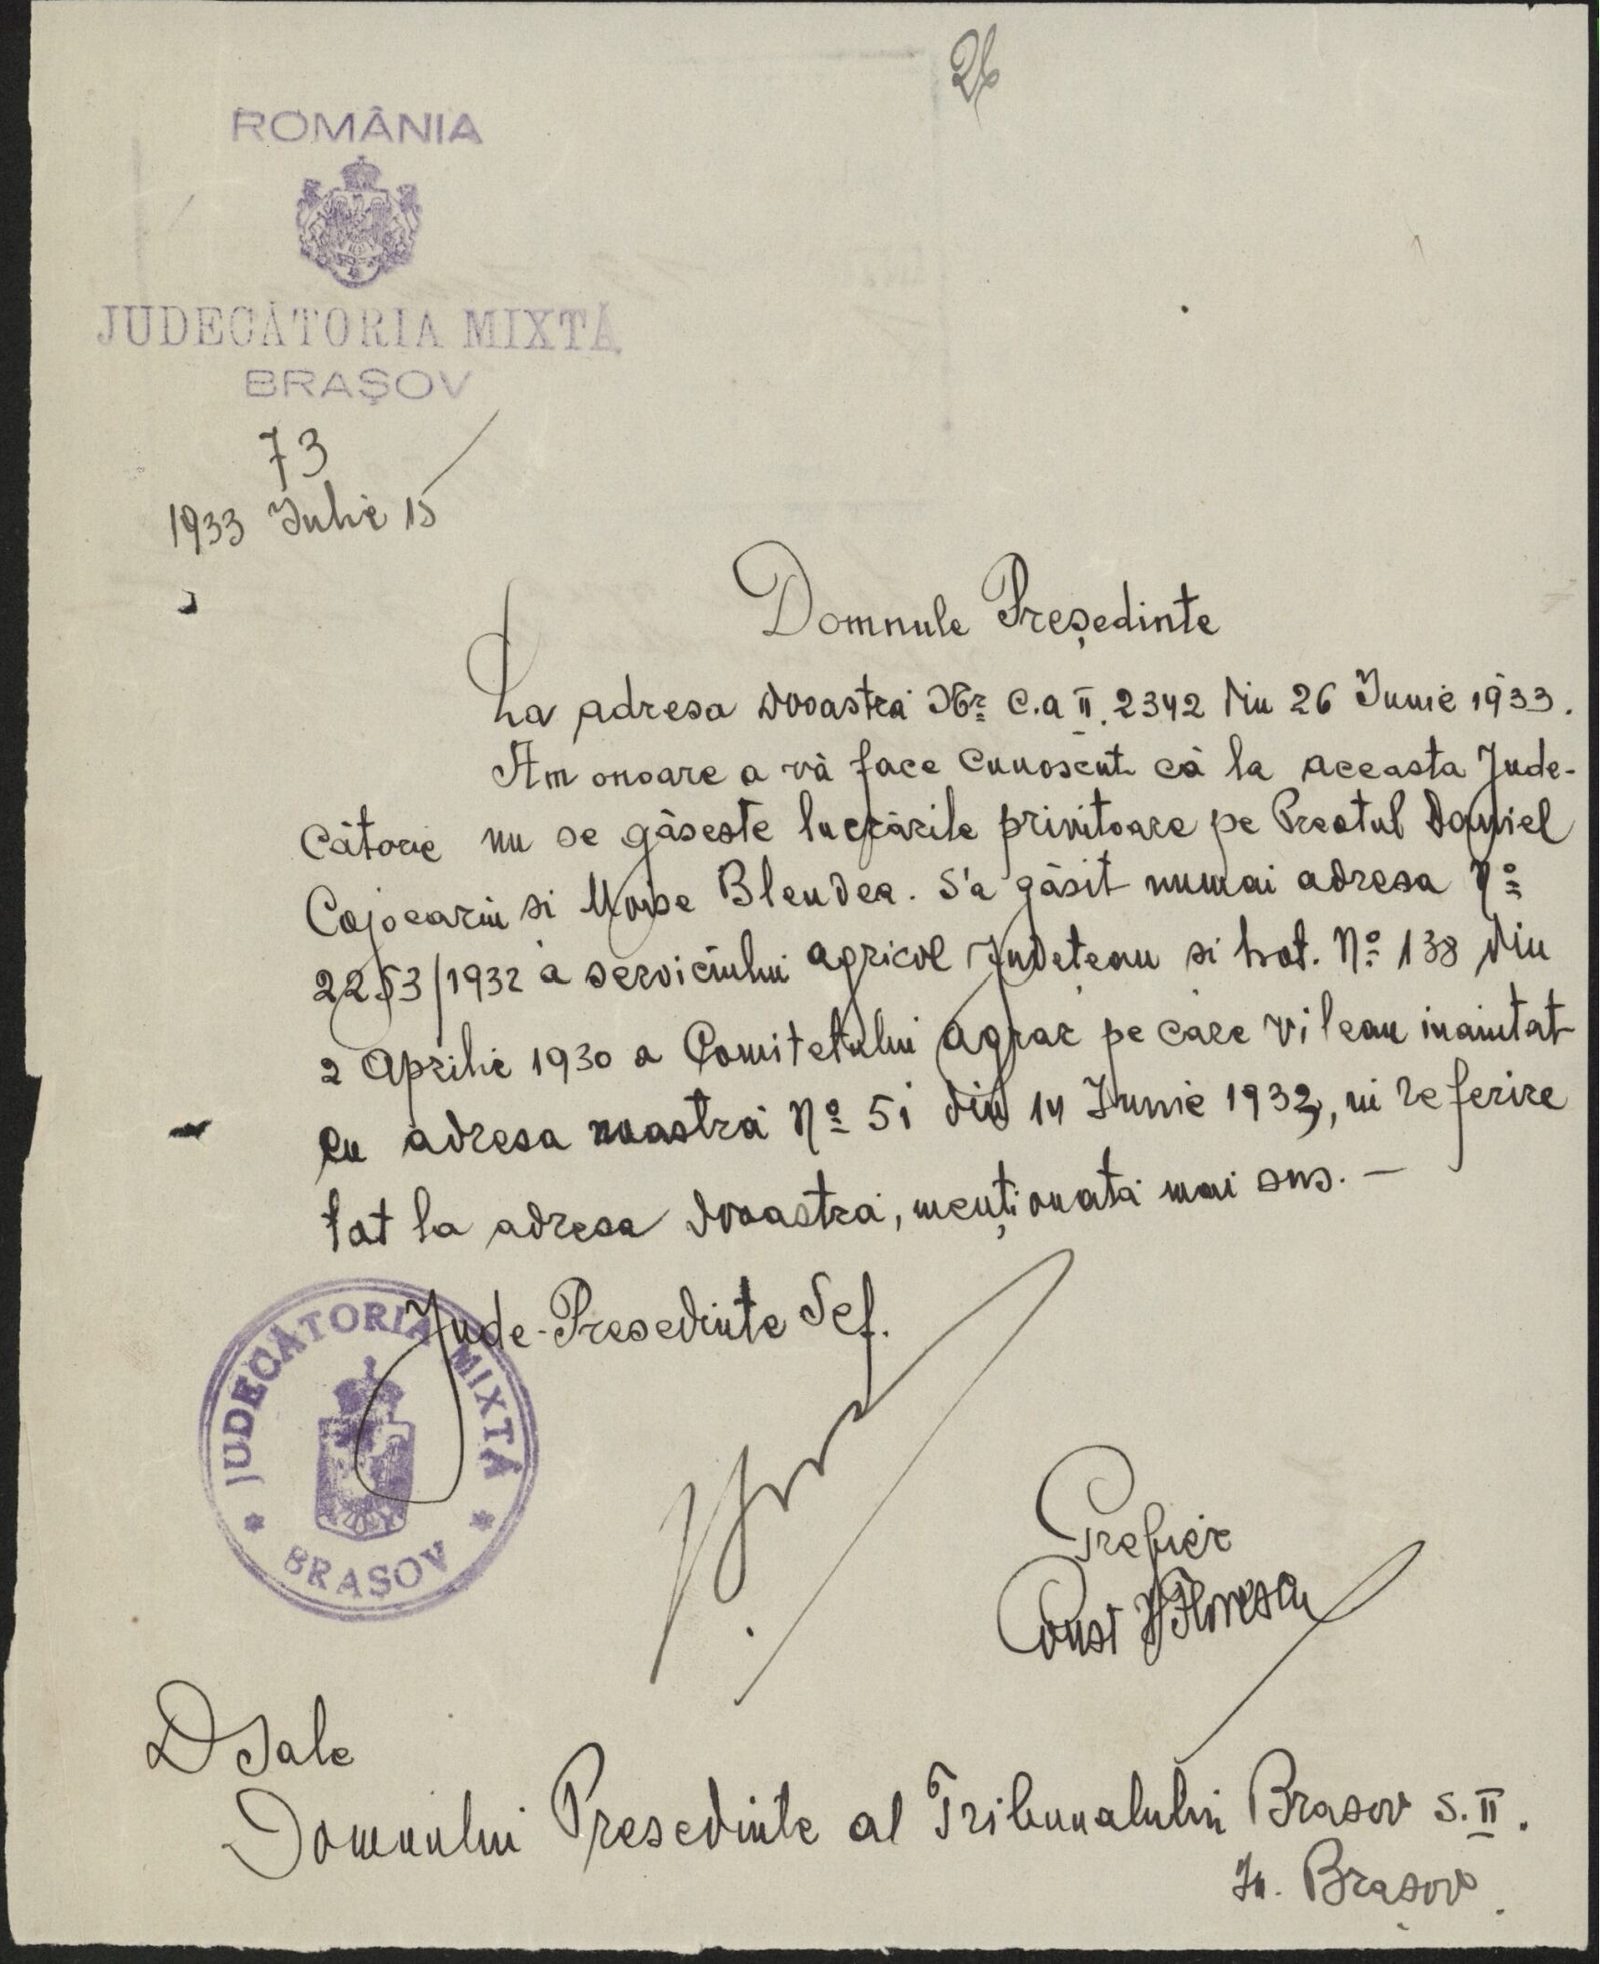 26
ROMÂNIA
JUDECĂTORIA MIXTĂ
BRAŞOV
73
1933 Iulie 15
Domnule Preşedinte
La adresa Dvoastră Nr. C.a II. 2342 din 26 Iunie 1933.
Am onoare a vă face cunoscut că la aceasta Jude-
cătorie nu se găseste lucrările privitoare pe Preotul Daniel
Cojocariu si Moise Blendea. S'a găsit numai adresa No
2253/1932 a serviciului agricol Judeţean si hot. No 138 din
2 Aprilie 1930 a Comitetului agrar pe care vi leau inaintat
cu adresa noastră No 51 din 14 Iunie 1933, ni referire
tot la adresa Dvoastră, menţionată mai sus. —
Jude-Presedinte Sef.
JUDECĂTORIA MIXTĂ
BRASOV
Grefier
Const Florescu
DSale
Domnului Presedinte al Tribunalului Brasov S. II.
In. Braşov.